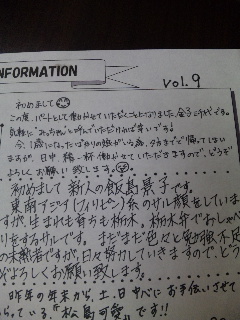 INFORMATION
vol.9
初めまして
この度、パートとして働かせていただくことになりました、金子千代です。
気軽に"みっちゃん"と呼んでいただければ幸いです!
今、1歳になったばかりの娘がいる為、夕方までで帰ってしまい
ますが、日中、精一杯働かせていただきますので、どうぞ
よろしくお願い致します。
初めまして 新人の飯島景子です。
東南アジア(フィリピン)系のサル顔をしていま
すが、生まれも育ちも栃木、栃木弁でおしゃべ
りをするサルです。まだまだ色々と勉強不足
の未熟者ですが、日々努力していきますので、どう
ぞよろしくお願い致します。
昨年の年末から、土、日中心にお手伝いさせて
もらっている、"松島可愛"です!!